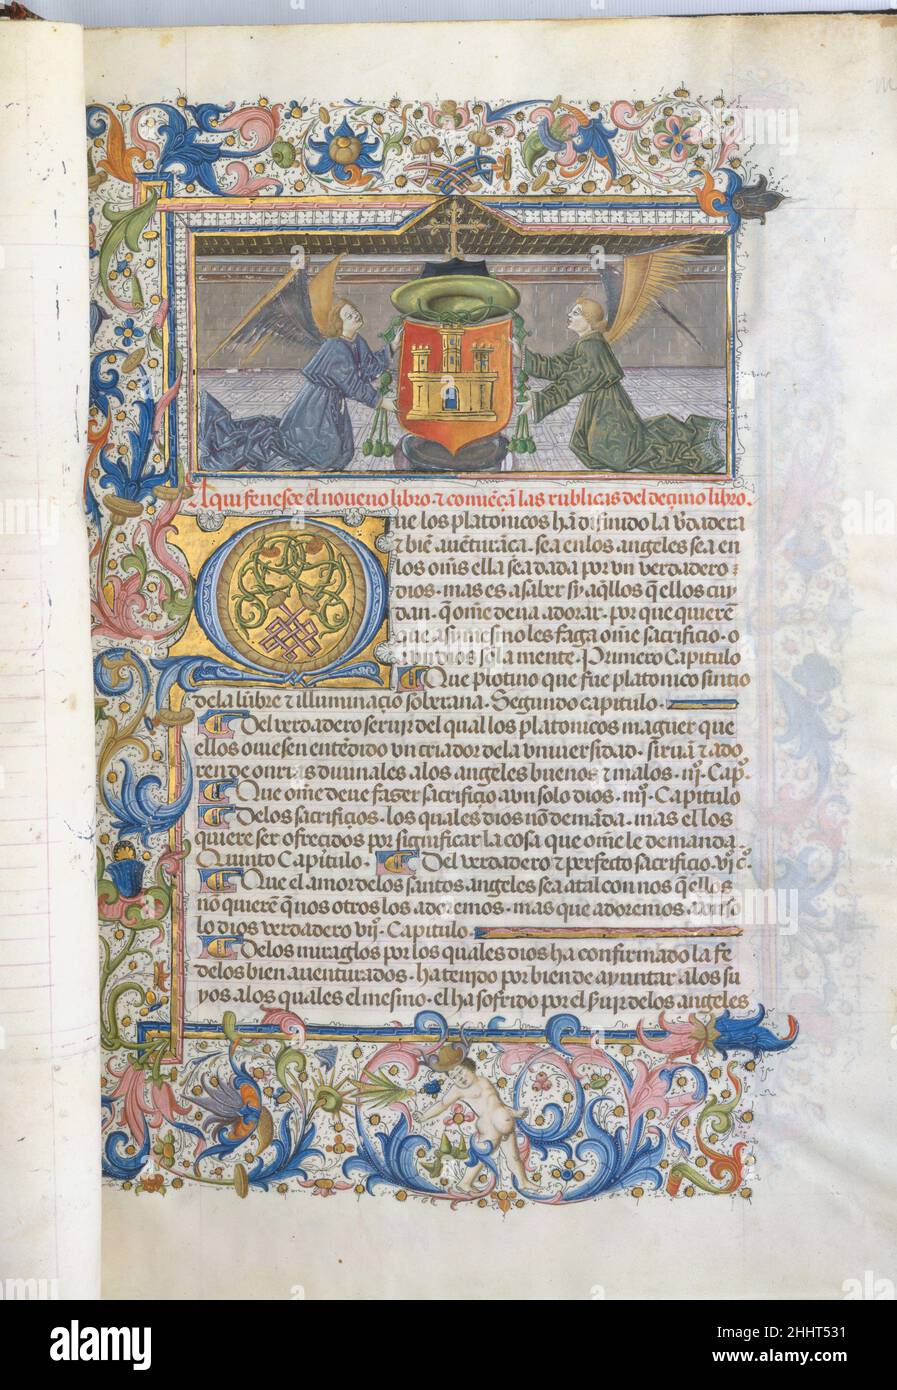 Aqui fenesçe el noueno libro · τ comiẽçã las rublicas del deçimo libro.
Que los platonicos hã difinido la v̉dadera
τ biẽ auenturãca · sea en los angeles sea en
los om̃s ella sea dada por vn verdadero
dios · mas es a saber sy aq̃llos q̃ ellos cuy
dan · q̃ om̃e deua adorar · por que quierẽ
que a sy mesmo les faga om̃e sacrificio · o
a vn dios sola mente · Primero Capitulo
Que plotino que fue platonico sintio
de la lũbre τ illuminaçio soberana · Segundo capitulo ·
Del verdadero seruiȷ del qual los platonicos maguer que
ellos ouiesen entẽdido vn criador de la vniuersidad · siruã τ ado
ren de onrras diuinales a los angeles buenos τ malos · iiȷ · Capo.
Que om̃e deue fazer sacrifiçio a vn solo dios · iiiȷ · Capitulo
De los sacrifiçios · los quales dios nõ demãda · mas el los
quiere ser ofreçidos por significar la cosa que om̃e le demanda
Quinto Capitulo · Del verdadero τ perfecto sacrifiçio · vȷ c̃.
Que el amor de los santos angeles sea atal con nos q̃ ellos
nõ quierẽ q̃ nos otros los adoremos · mas que adoremos a vn so
lo dios verdadero viȷ · Capitulo ·
De los miraglos por los quales dios ha confirmado la fe
de los bien auenturados · ha tenido por bien de ayuntar a los su
yos a los quales el mesmo · el ha sofrido por el s̃uiȷr de los angeles
alamy
Image ID: 2HHT531
www.alamy.com